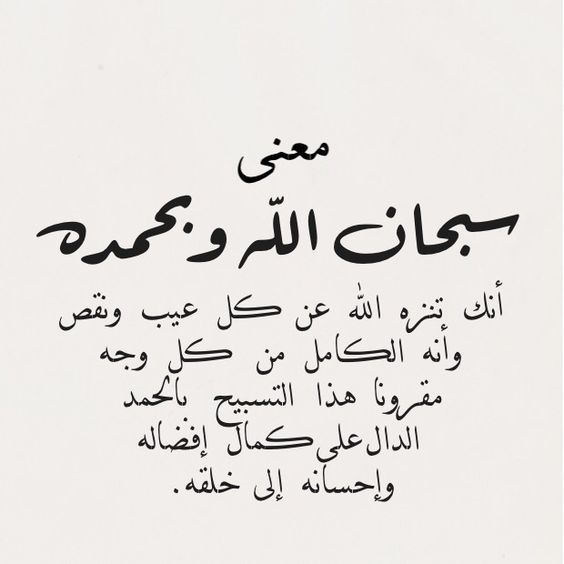 معنى
سبحان الله وبحمده
أنك تنزه الله عن كل عيب ونقص
وأنه الكامل من كل وجه
مقرونا هذا التسبيح بالحمد
الدال على كمال إفضاله
وإحسانه إلى خلقه.